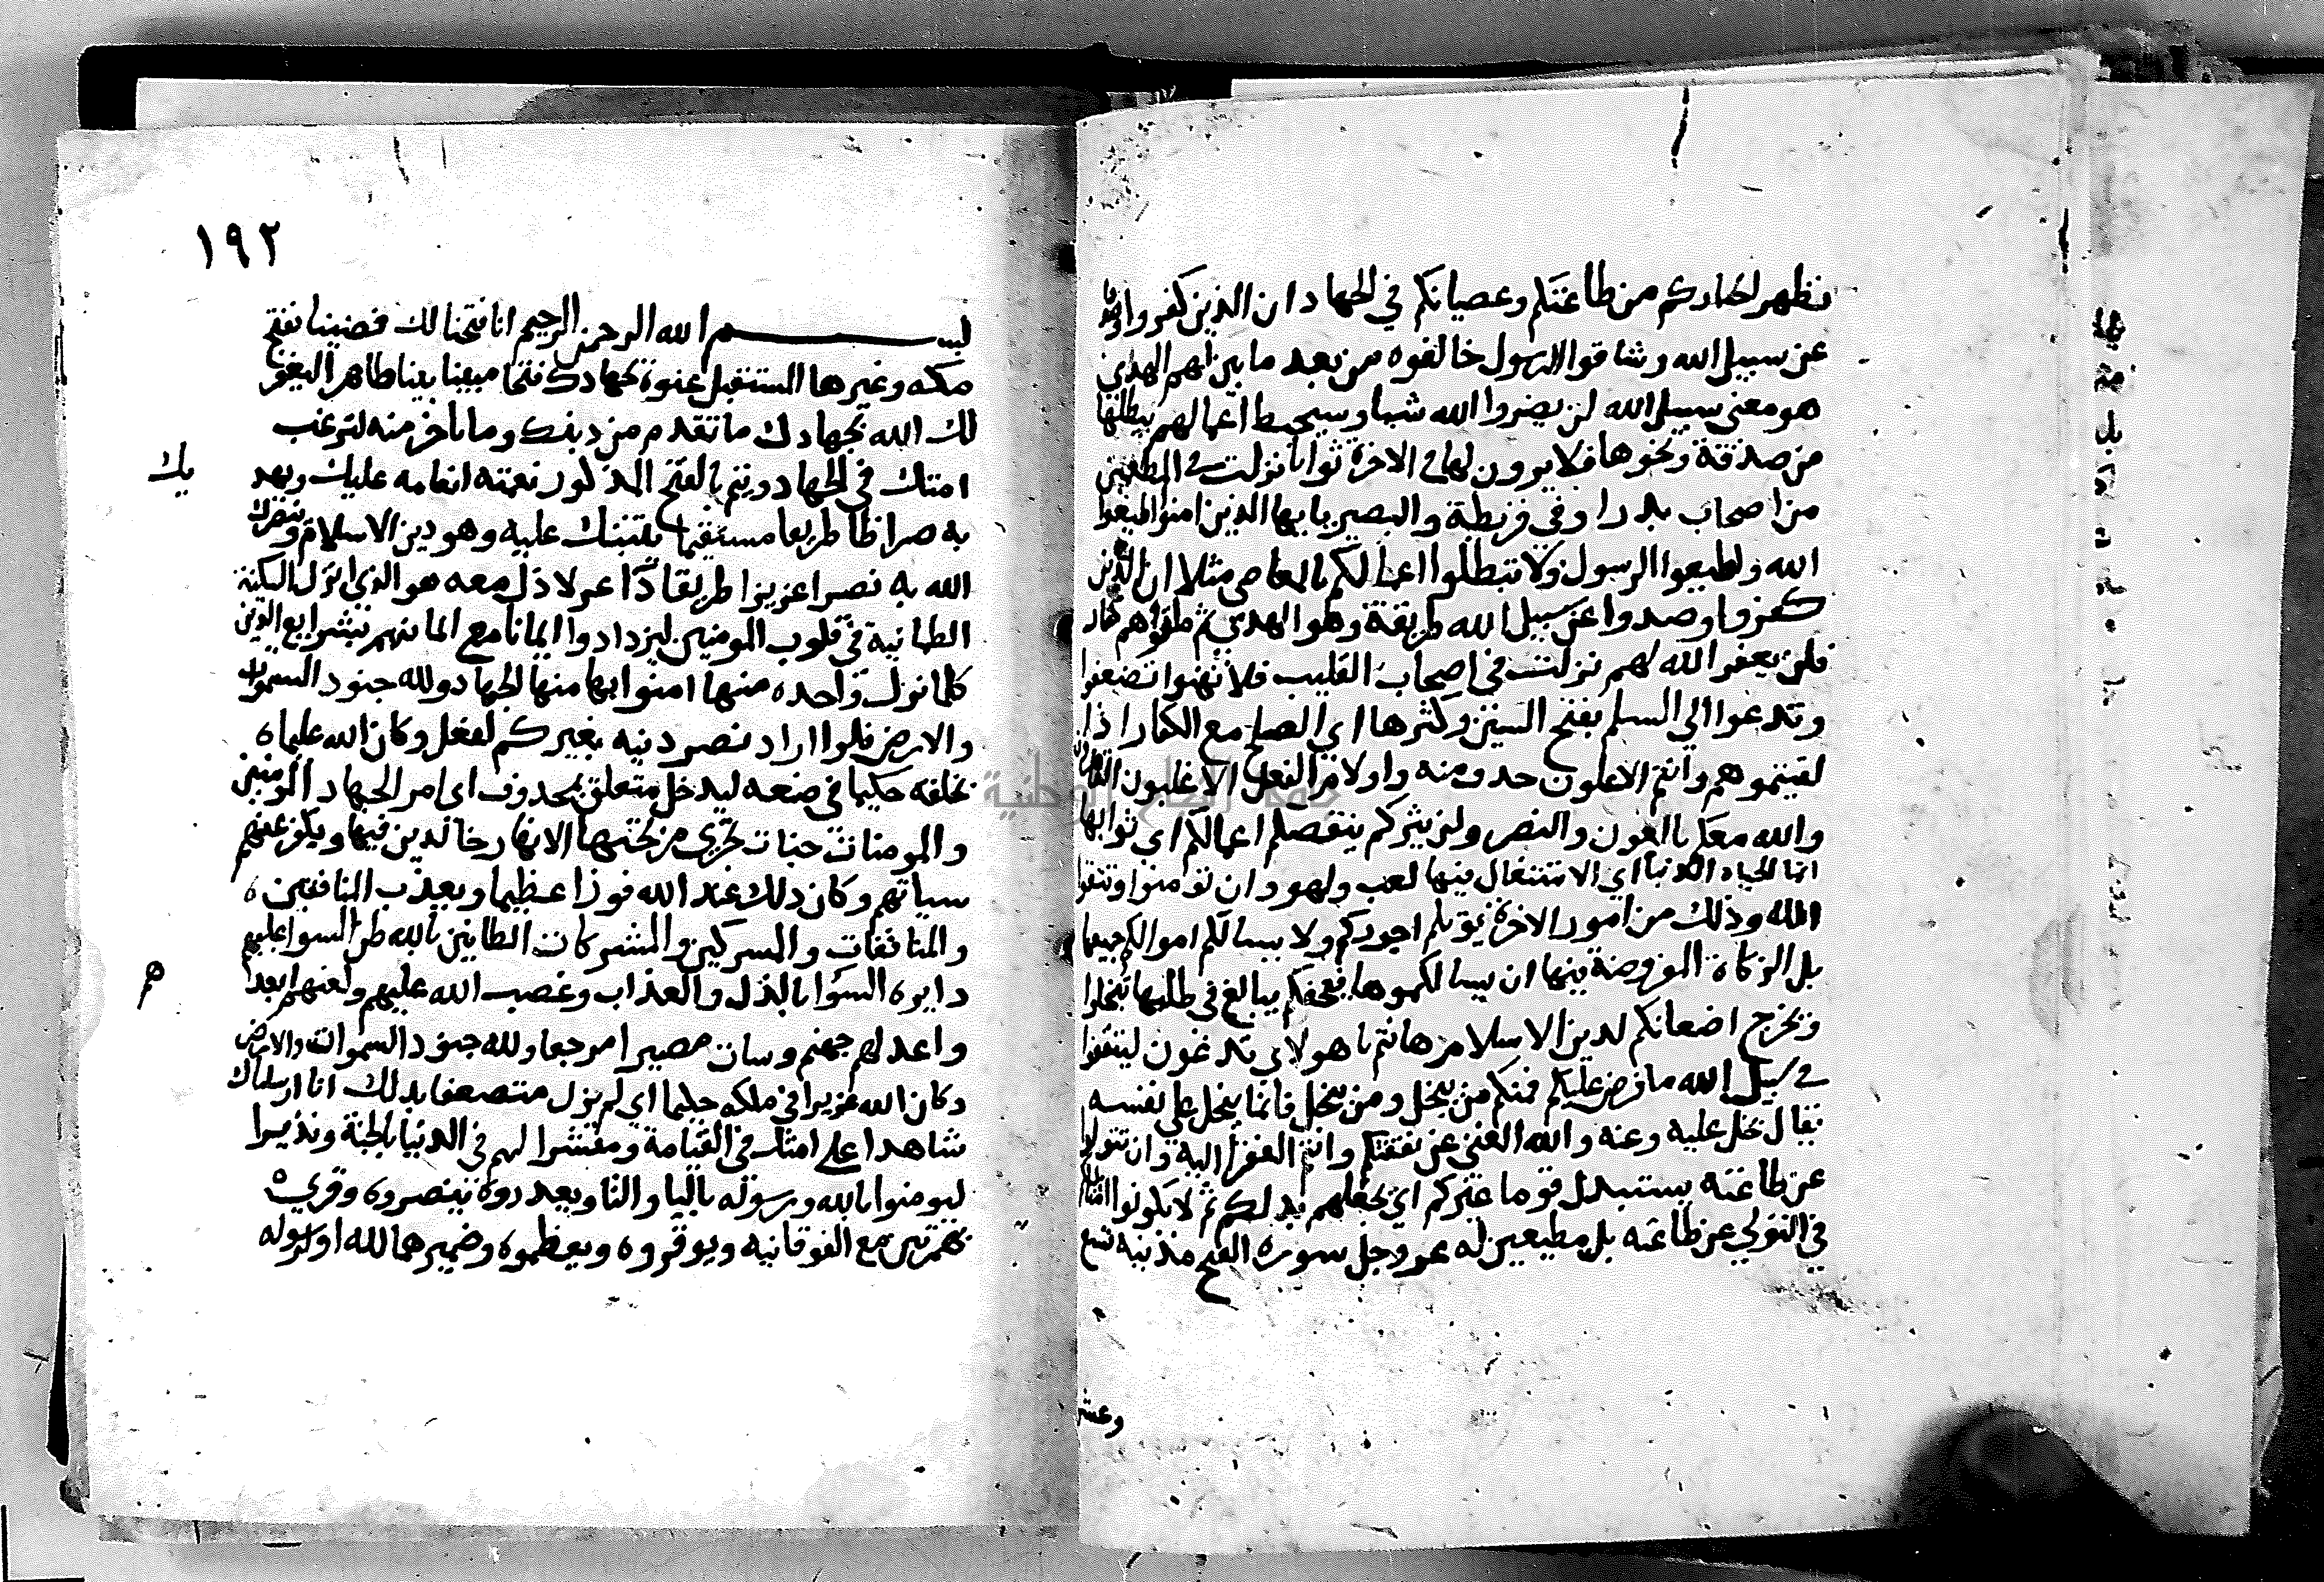 نظهر اخباركم من طاعتكم وعصيانكم في الجهاد ان الذين كفروا وصدوا
عن سبيل الله وشاقوا الرسول خالفوه من بعد ما بين لهم الهدي
هو معني سبيل الله لن يضروا الله شيا وسيحبط اعمالهم يبطلها
من صدقة ونحوها فلا يرون لها في الاخرة ثوابا نزلت في المطعمين
من اصحاب بدر او في قريظة والبصير يا يها الذين امنوا اطيعوا
الله واطيعوا الرسول ولا تبطلوا اعمالكم بالمعاصي مثلا ان الذين
كفروا وصدوا عن سبيل الله طريقة وهو الهدي ثم ماتوا وهم كفار
فلن يغفر الله لهم نزلت في اصحاب القليب فلا تهنوا تضعفوا
وتدعوا الي السلم بفتح السين وكسرها اي الصلح مع الكفار اذا
لقيتموهم وانتم الاعلون حد ومنه واو لام الفعل الاغلبون القاهرون
والله معكم بالعون والنصر ولن يتركم ينقصكم اعمالكم اي ثوابها
انما الحياه الدنيا اي الاشتغال فيها لعب ولهو وان تومنوا وتتقوا
الله وذلك من امور الاخرة يوتكم اجوركم ولا يسالكم اموالكم جميعا
بل الزكاة المفروضة فيها ان يسالكموها فيحفكم يبالغ في طلبها تبخلوا
ويخرج اضغانكم لدين الاسلام ها نتم يا هولاي تدعون لتنفقوا
في سبيل الله ما فرض عليكم فمنكم من يبخل ومن يبخل فانما يبخل علي نفسه
يقال بخل عليه وعنه والله الغني عن نفقتكم وانتم الفقرا اليه وان تتولوا
عن طاعته يستبدل قوما غيركم اي يجعلهم بدلكم ثم لا يكونوا امثالكم
في التولي عن طاعته بل مطيعين له عز وجل سورة الفتح مدنيه تسع
وعشر
١٩٢
بسم الله الرحمن الرحيم انا فتحنا لك قضينا بفتح
مكه وغيرها المستقبل عنوة بجهادك فتحا مبينا بينا ظاهرا ليغفر
لك الله بجهادك ما تقدم من ذنبك وما تاخر منه لترغب
امتك في الجهاد ويتم بالفتح المذكور نعمته انعامه عليك ويهد
يك
به صراطا طريقا مستقيما يثبتك عليه وهو دين الاسلام وينصرك
الله به نصرا عزيزا طريقا ذا عز لا ذل معه هو الذي انزل السكينة
الطمانية في قلوب المومنين ليزدادوا ايمانا مع ايمانهم بشرايع الدين
كلما نزل واحده منها امنوا بها منها الجهاد ولله جنود السموات
والارض فلو اراد نصر دينه بغيركم لفعل وكان الله عليما
بخلقه حكيما في صنعه ليدخل متعلق بمحذوف اي امر الجهاد المومنين
والمومنات جنات تجري من تحتها الانهار خالدين فيها ويكفر عنهم
سياتهم وكان ذلك عند الله فوزا عظيما ويعذب المنافقين
والمنافقات والمسركين والمشركات الظانين بالله ظن السوا عليهم
دايره السوا بالذل والعذاب وغضب الله عليهم ولعنهم ابعد
هم
واعد لهم جهنم وسات مصيرا مرجعا ولله جنود السموات والارض
وكان الله عزيزا في ملكه حكيما اي لم يزل متصفا بذلك انا ارسلناك
شاهدا علي امتك في القيامة ومبشرا لهم في الدنيا بالجنة ونذيرا
ليومنوا بالله ورسوله باليا والتا ويعزروه ينصروه وقري
بهمزتين مع الفوقانيه ويوقروه ويعظموه وضميرهما لله او لرسوله